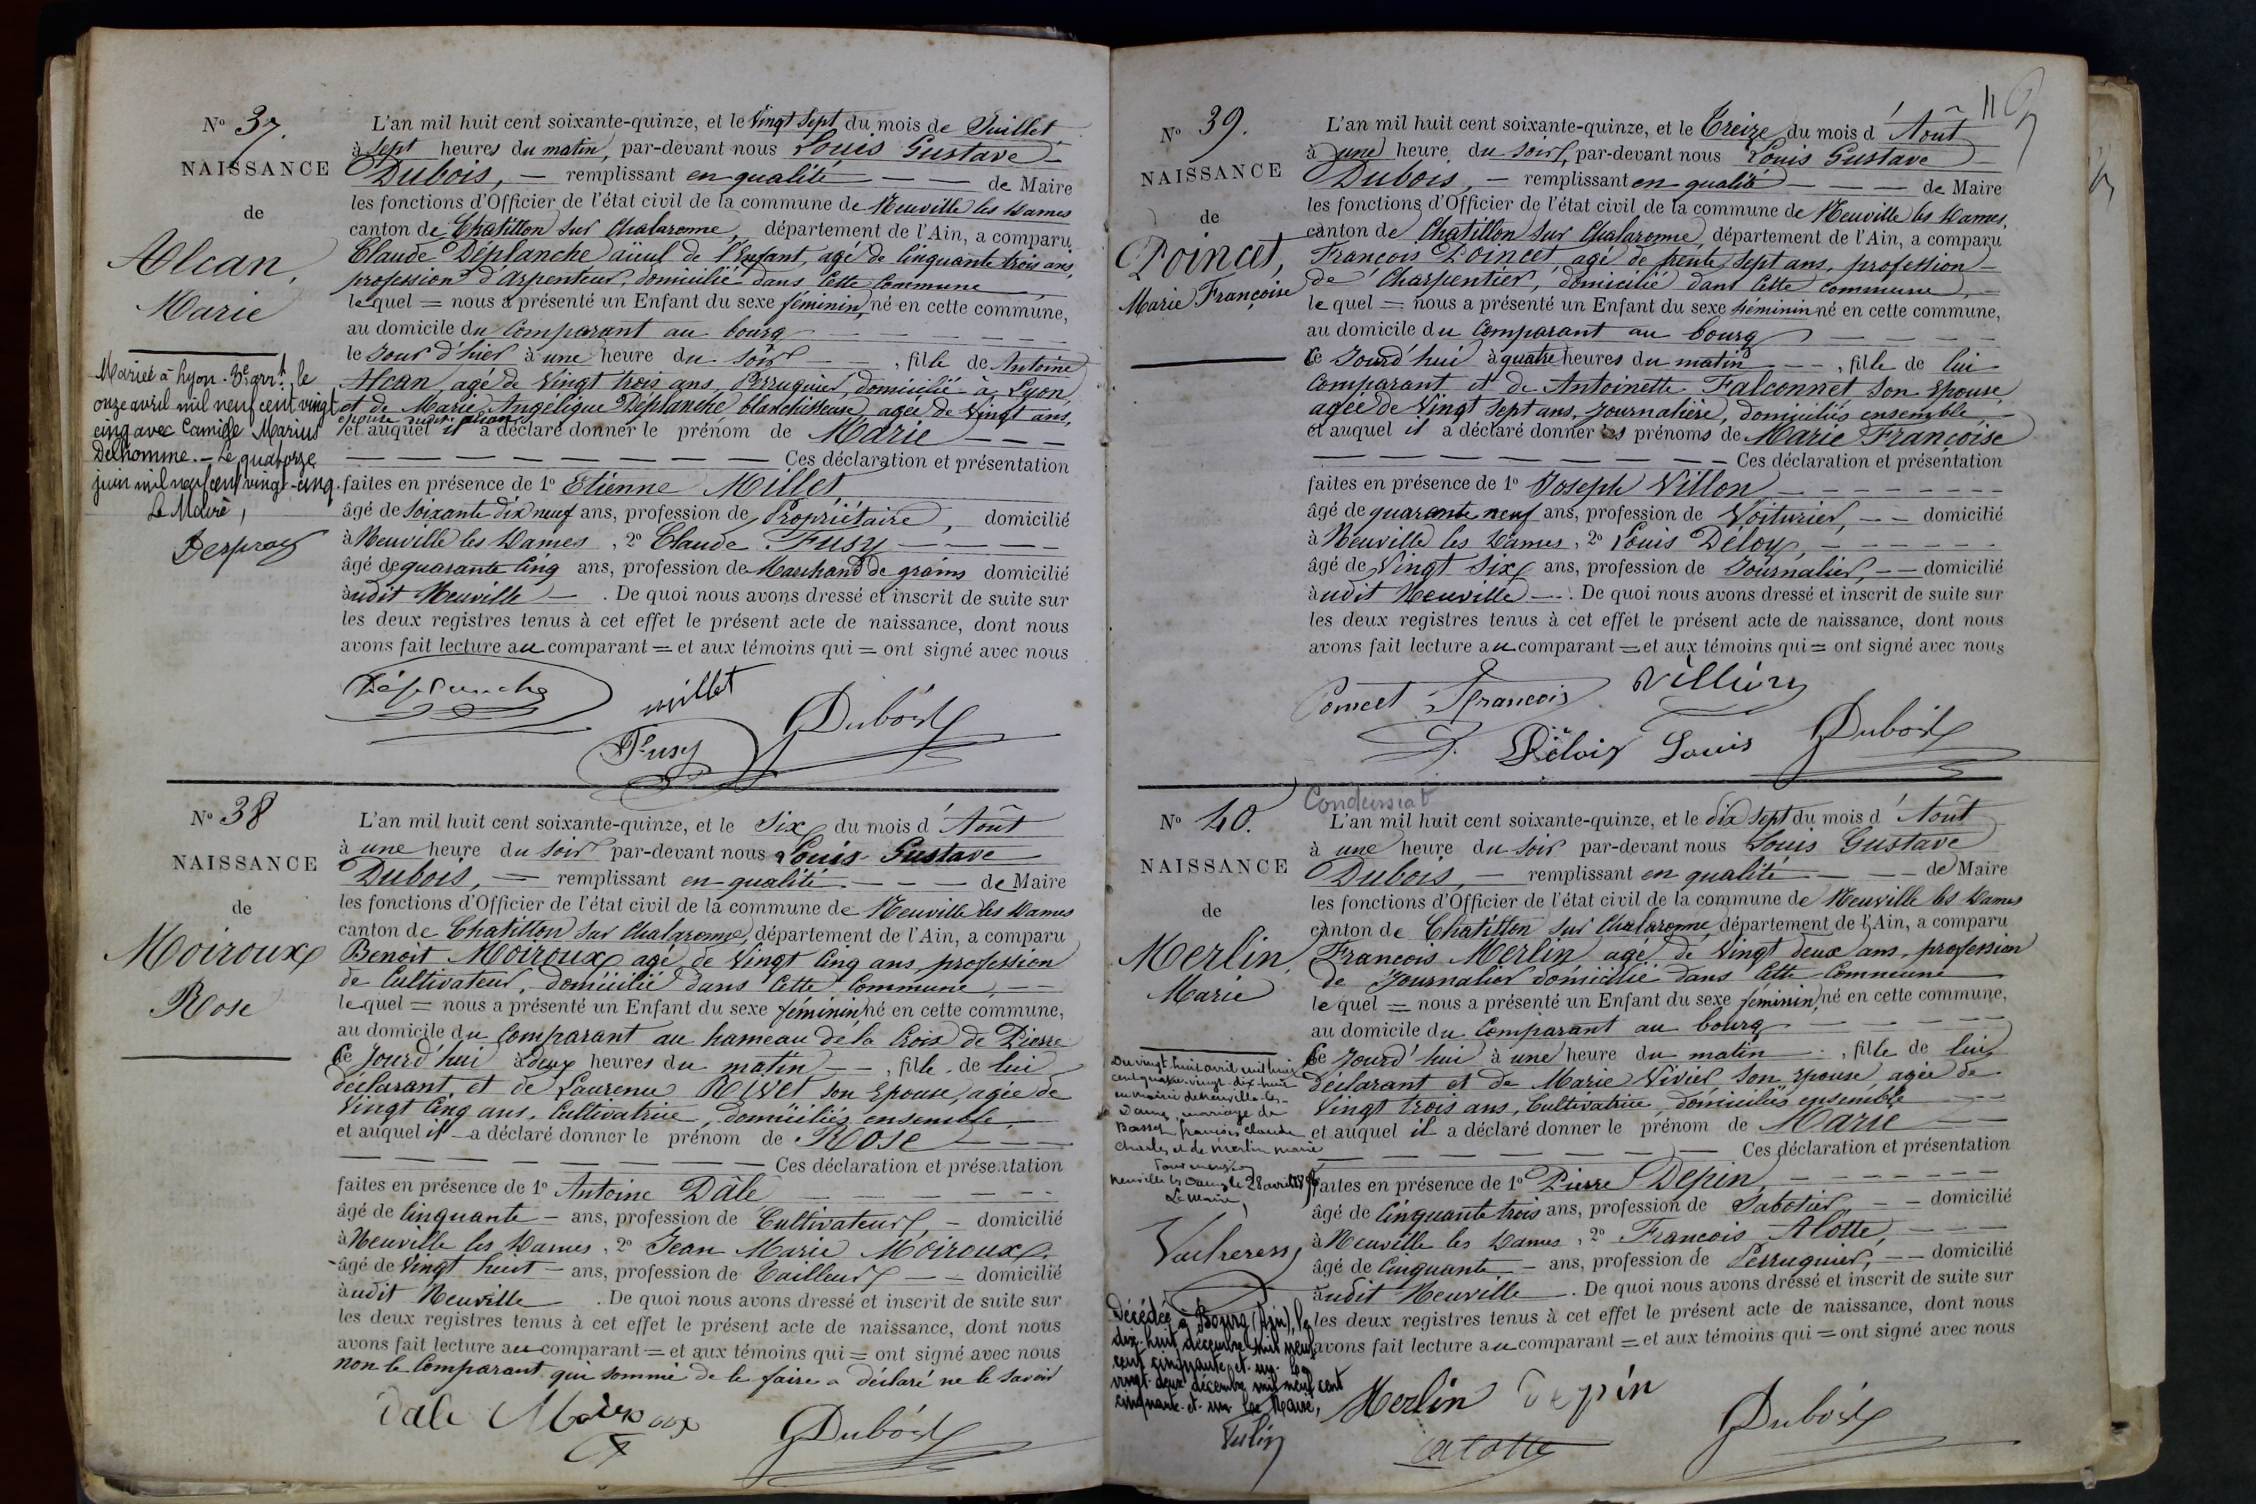 N° 37.
NAISSANCE
de
Alcan,
Marie
Mariée à Lyon. 3e arrt, le
onze avril mil neuf cent vingt
cinq avec Camille Marius
Delhomme. – Le quatorze
juin mil neuf cent vingt-cinq.
Le Maire,
L'an mil huit cent soixante-quinze, et le Vingt Sept du mois de Juillet
à Sept heures du matin, par-devant nous Louis Gustave
Dubois, — remplissant en qualité — — de Maire
les fonctions d'Officier de l'état civil de la commune de Neuville les Dames
canton de Chatillon sur Chalaronne, département de l'Ain, a comparu
Claude Déplanche aïeul de l'Enfant, agé de Cinquante trois ans,
profession d'Arpenteur, domicilié dans Cette Commune,
lequel = nous a présenté un Enfant du sexe féminin, né en cette commune,
au domicile du Comparant au bourg — — — —
le Jour d'hier à une heure du Soir — —, fille de Antoine
Alcan, agé de Vingt trois ans, Perruquier, domicilié à Lyon,
et de Marie Angélique Déplanche blanchisseuse, agée de Vingt ans,
et auquel il a déclaré donner le prénom de Marie — — —
— — — — — — — Ces déclaration et présentation
faites en présence de 1° Etienne Millet
âgé de Soixante dix neuf ans, profession de Propriétaire, domicilié
à Neuville les Dames, 2° Claude Fusy — — — —
âgé de quarante Cinq ans, profession de Marchand de grains domicilié
àudit Neuville — . De quoi nous avons dressé et inscrit de suite sur
les deux registres tenus à cet effet le présent acte de naissance, dont nous
avons fait lecture au comparant = et aux témoins qui = ont signé avec nous
Déplanche
millet
Fusy
Dubois
N° 38
NAISSANCE
de
Moiroux
Rose
L'an mil huit cent soixante-quinze, et le Six du mois d'Août
à une heure du Soir par-devant nous Louis Gustave
Dubois, — remplissant en qualité — — — de Maire
les fonctions d'Officier de l'état civil de la commune de Neuville les Dames
canton de Chatillon sur Chalaronne, département de l'Ain, a comparu
Benoit Moiroux agé de Vingt Cinq ans, profession
de Cultivateur, domicilié dans Cette Commune, — —
lequel = nous a présenté un Enfant du sexe féminin, né en cette commune,
au domicile du Comparant au hameau de la Croix de Pierre
Ce Jourd'hui à deux heures du matin — —, fille de lui
déclarant et de Laurence Rivet son Epouse, agée de
Vingt Cinq ans, Cultivatrice, domiciliés ensemble, —
et auquel il — a déclaré donner le prénom de Rose — — —
— — — — — — — Ces déclaration et présentation
faites en présence de 1° Antoine Dâle — — — — —
âgé de Cinquante — ans, profession de Cultivateur, — domicilié
à Neuville les Dames, 2° Jean Marie Moiroux,
âgé de Vingt huit — ans, profession de Tailleur — — domicilié
àudit Neuville — . De quoi nous avons dressé et inscrit de suite sur
les deux registres tenus à cet effet le présent acte de naissance, dont nous
avons fait lecture au comparant = et aux témoins qui = ont signé avec nous
non le Comparant qui sommé de le faire a déclaré ne le savoir
Dale Moiroux
Dubois
N° 39.
NAISSANCE
de
Poincet,
Marie Françoise
L'an mil huit cent soixante-quinze, et le Treize du mois d'Août
à une heure du soir, par-devant nous Louis Gustave
Dubois, — remplissant en qualité — — — de Maire
les fonctions d'Officier de l'état civil de la commune de Neuville les Dames,
canton de Chatillon sur Chalaronne, département de l'Ain, a comparu
François Poincet agé de trente Sept ans, profession —
de Charpentier, domicilié dans Cette commune, —
lequel = nous a présenté un Enfant du sexe féminin né en cette commune,
au domicile du Comparant au bourg — — — —
Ce Jourd'hui à quatre heures du matin — —, fille de lui
Comparant et de Antoinette Falconnet, son Epouse,
agée de Vingt Sept ans, Journalière, domiciliés ensemble —
et auquel il a déclaré donner les prénoms de Marie Françoise
— — — — — — — Ces déclaration et présentation
faites en présence de 1° Joseph Villon — — — — —
âgé de quarante neuf ans, profession de Voiturier, — — domicilié
à Neuville les Dames, 2° Louis Déloy, — — — —
âgé de Vingt Six ans, profession de Journalier, — — domicilié
àudit Neuville — . De quoi nous avons dressé et inscrit de suite sur
les deux registres tenus à cet effet le présent acte de naissance, dont nous
avons fait lecture au comparant = et aux témoins qui = ont signé avec nous
Poincet François
Délois Louis
Dubois
N° 40.
NAISSANCE
de
Merlin,
Marie
Du vingt huit avril mil huit
cent quatre-vingt dix-huit
en mairie de Neuville-les-
Dames, mariage de
Basset françois claude
charles et de merlin marie
Neuville les Dames le 28 avril 1898
Le Maire,
Décédée à Bourg (Ain), le
dix-huit décembre mil neuf
cent cinquante et un. Le
vingt-deux décembre mil neuf cent
cinquante et un Le Maire,
Condeissiat
L'an mil huit cent soixante-quinze, et le dix Sept du mois d'Août
à une heure du Soir par-devant nous Louis Gustave
Dubois, — remplissant en qualité — — — de Maire
les fonctions d'Officier de l'état civil de la commune de Neuville les Dames
canton de Chatillon sur Chalaronne, département de l'Ain, a comparu
François Merlin agé de Vingt deux ans, profession
de Journalier domicilié dans Cette Commune
lequel = nous a présenté un Enfant du sexe féminin, né en cette commune,
au domicile du Comparant au bourg — — — —
Ce Jourd'hui à une heure du matin — , fille de lui
déclarant et de Marie Vivier, son Epouse, agée de
Vingt trois ans, Cultivatrice, domiciliés ensemble — —
et auquel il a déclaré donner le prénom de Marie — —
— — — — — — — Ces déclaration et présentation
faites en présence de 1° Pierre Depin, — — — —
âgé de Cinquante trois ans, profession de Sabotier, — — domicilié
à Neuville les Dames, 2° François Alotte, — — —
âgé de Cinquante — ans, profession de Perruquier, — — domicilié
àudit Neuville — . De quoi nous avons dressé et inscrit de suite sur
les deux registres tenus à cet effet le présent acte de naissance, dont nous
avons fait lecture au comparant = et aux témoins qui = ont signé avec nous
Merlin Depin
alotte
Dubois